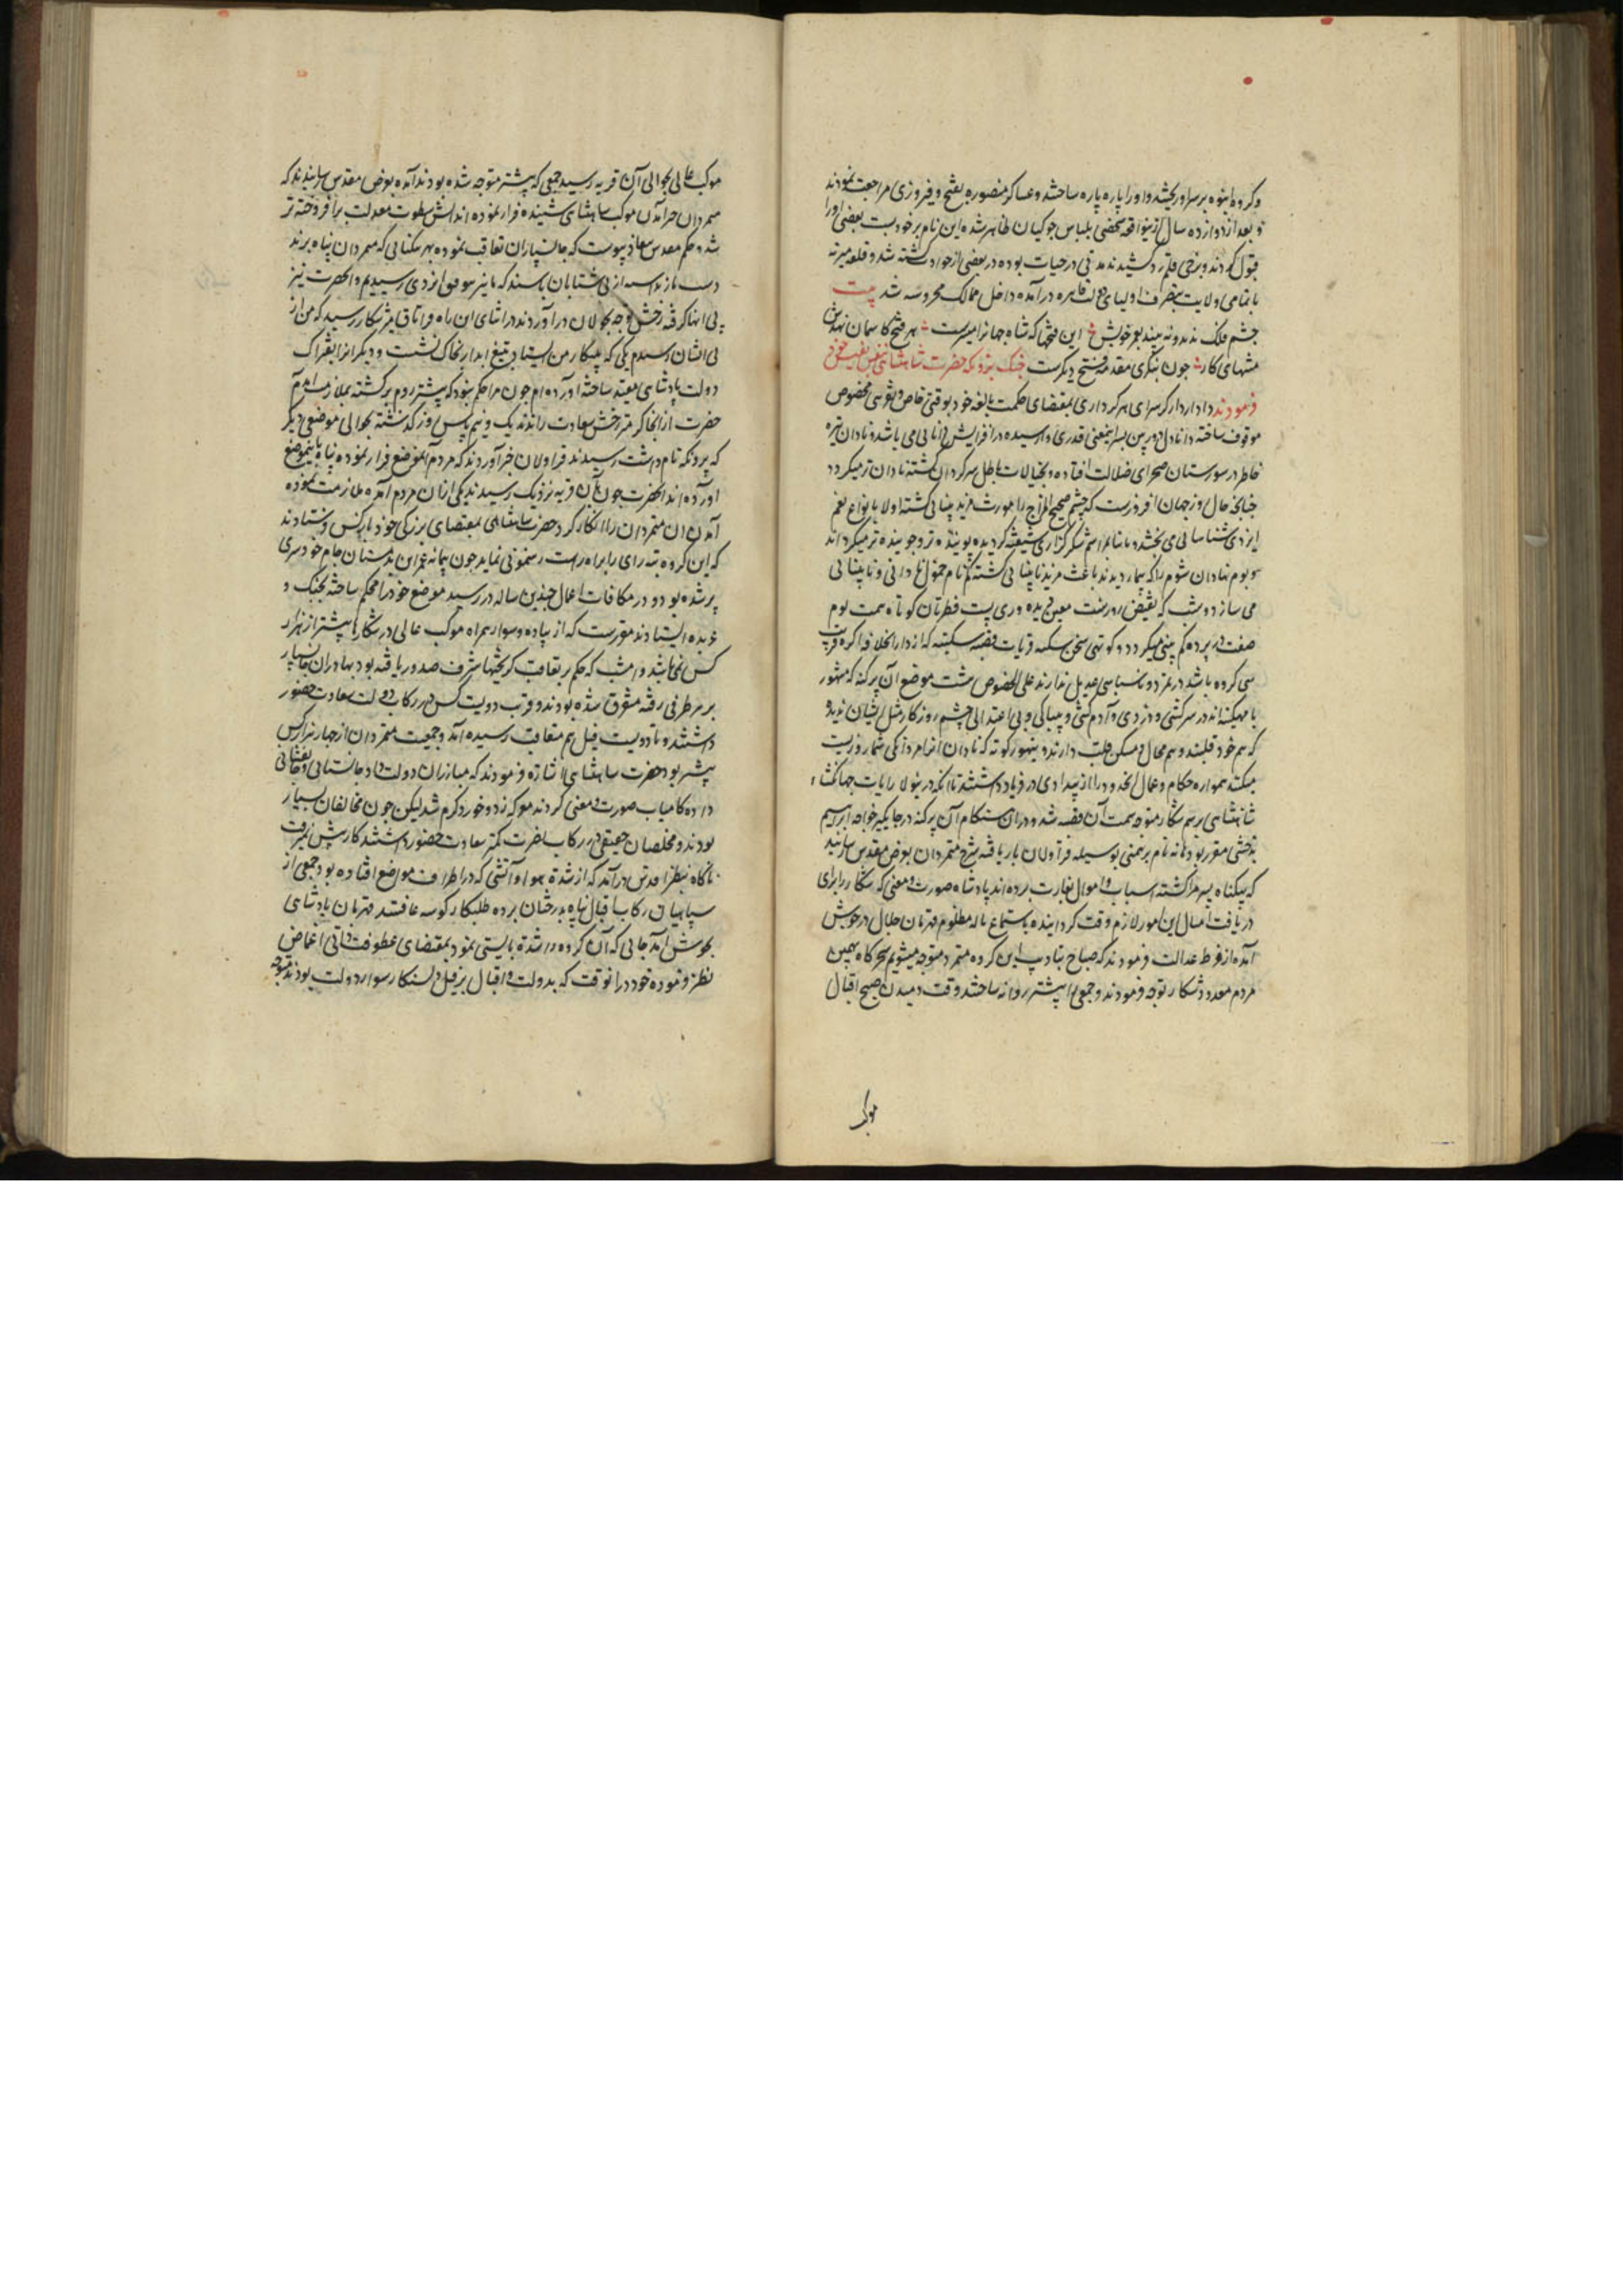 و کروه انبوه بر سر او ریختند و او را پاره پاره ساختند و عساکر منصوره بفتح و فیروزی مراجعت نمودند
و بعد از دوازده سال ازین واقعه شخصی بلباس جوکیان ظاهر شده این نام بر خود بست بعضی او را
قبول کردند و برخی قلم رد کشیدند مدتی در حیات بوده در بعضی از حوادث کشته شد و قلعه میرته
با تمامی ولایت بتصرف اولیای دولت قاهره درآمده داخل ممالک محروسه شد بیت
چشم فلک ندید و نه بیند بعمر خویش این فتحها که شاه جهانرا میسرست هر فتح کاسمان نهدش
منتهای کار چون بنگری مقدمه فتح دیگرست جنک پرونکه حضرت شاهنشاهی بنفس نفیس خود
فرمودند دادار دارکر سزای هر کرداری بمقتضای حکمت بالغه خود بوقتی خاص و نحوی مخصوص
موقوف ساخته دانادل دوربین بسر اینمعنی قدری وارسیده در افزایش دانایی می باشد و نادان تیره
خاطر در سورستان صحرای ضلالت افتاده و بخیالات باطل سرکردان کشته نادان تر میکردد
چنانچه حال روز جهان افروزست که چشم صحیح المزاج را مورث مزید بینایی کشته اولا بانواع نعم
ایزدی شناسایی می بخشد و ثانیا بمراسم شکرکزاری شیفته کردیده پوینده تر و جوینده تر میکرداند
و بوم نهادان شوم را که بیمار دیدند باعث مزید نابینایی کشته کمنام خمول نادانی و نابینایی
می سازد و شب که نقیض روزست معین دیده وری پست فطرتان کوتاه همت بوم
صفت در پرده کم بینی میکردد و کوتهی سخن سکنه قریات قصبه سکیته که از دار الخلافه آکره قریب
سی کروه باشد در تمرد و ناسپاسی عدیل ندارند علی الخصوص هشت موضع آن پرکنه که مشهور
با تهکیته اند در سرکشی و دزدی و آدم کشی و بیباکی و بی اعتدالی چشم روزکار مثل ایشان ندیده
که هم خود قلبند و هم محال و مسکن قلب دارند و بتهور کوته که نادان انرا مردانکی شمارد زیست
میکنند همواره حکام و عمال آنحدود را از بیدادی در فریاد داشتند تا آنکه درینولا رایات جهانکشاء
شاهنشاهی برسم شکار متوجه سمت آن قصبه شد و دران هنکام آن پرکنه در جایکیر خواجه ابراهیم
بدخشی مقرر بود هاپه نام برهمنی بوسیله قراولان بار یافته شرح متمردان بعرض مقدس رسانید
که بیکناه پسر مرا کشته اسباب و اموال بغارت برده اند پادشاه صورت و معنی که شکار را برای
دریافت امثال این امور لازم وقت کردانیده باستماع ناله مظلوم قهرمان جلال در جوش
آمده از فرط عدالت فرمودند که صباح بتادیب این کروه متمرد متوجه میشویم سحرکاه بهمین
مردم معدود شکار توجه فرمودند و جمعی را پیشتر روانه ساختند وقت دمیدن صبح اقبال
موکب
موکب عالی بحوالی آن قریه رسید جمعی که پیشتر متوجه شده بودند آمده بعرض مقدس رسانیدند که
متمردان خبر آمدن موکب شاهنشاهی شنیده فرار نموده اند آتش سطوت معدلت برافروخته تر
شد و حکم مقدس نفاذ پیوست که جانسپاران تعاقب نموده بهر مکانی که متمردان پناه برند
دست باز نداشته از پی شتابان باشند که ما نیز بتوفیق ایزدی رسیدیم و آنحضرت نیز
پی آنها کرفته رخش توجه بجولان درآوردند در اثنای این راه قراتاق میرشکار رسید که من از
پی ایشان رسیدم یکی که به پیکار من ایستاد بتیغ آبدار بخاک نشست و دیکر انرا بفتراک
دولت پادشاهی مقید ساخته آورده ام چون مرا حکم نبود که پیشتر روم برکشته بملازمت آمدم
حضرت از آنجا کرم تر رخش سعادت راندند یک و نیم پاس روز کذشته بحوالی موضعی دیکر
که پرونکه نام داشت رسیدند قراولان خبر آوردند که مردم آنموضع فرار نموده پناه باینموضع
آورده اند آنحضرت چون بآن قریه نزدیک رسیدند یکی از ان مردم آمده ملازمت نموده
آمدن ان متمردان را انکار کرد حضرت شاهنشاهی بمقتضای بزرکی خود باز کس فرستادند
که این کروه تبه رای را براه راست رهنمونی نماید چون پیمانه عمر این بدمستان جام خودسری
پر شده بود و در مکافات اعمال چندین ساله در رسید موضع خود را محکم ساخته بجنک و
عربده ایستادند مقررست که از پیاده و سوار همراه موکب عالی در شکارها بیشتر از هزار
کس نمی باشد و امشب که حکم بتعاقب کریختها شرف صدور یافته بود بهادران جانسپار
بر هر طرفی رفته متفرق شده بودند و قریب دویست کس در رکاب دولت سعادت حضور
داشتند و تا دویست فیل هم متعاقب رسیده آمد و جمعیت متمردان از چهار هزار کس
بیشتر بود حضرت شاهنشاهی اشارة فرمودند که مبارزان دولت داد جانستانی و جانفشانی
داده کامیاب صورت و معنی کردند معرکه زد و خورد کرم شد لیکن چون مخالفان بسیار
بودند و مخلصان حقیقی در رکاب نصرت کمتر سعادت حضور داشتند کار پیش نمیرفت
ناکاه بنظر اقدس درآمد که از شدة هوا و آتشی که در اطراف مواضع افتاده بود جمعی از
سپاهیان رکاب اقبال پناه بدرختان برده طلبکار کوشه عافیتند قهرمان پادشاهی
بجوش آمد جایی که آن کروه را شدة بایستی نمود بمقتضای عطوفت ذاتی اغماض
نظر فرموده خود در انوقت که بدولت و اقبال بر فیل دلسنکار سوار دولت بودند متوجه